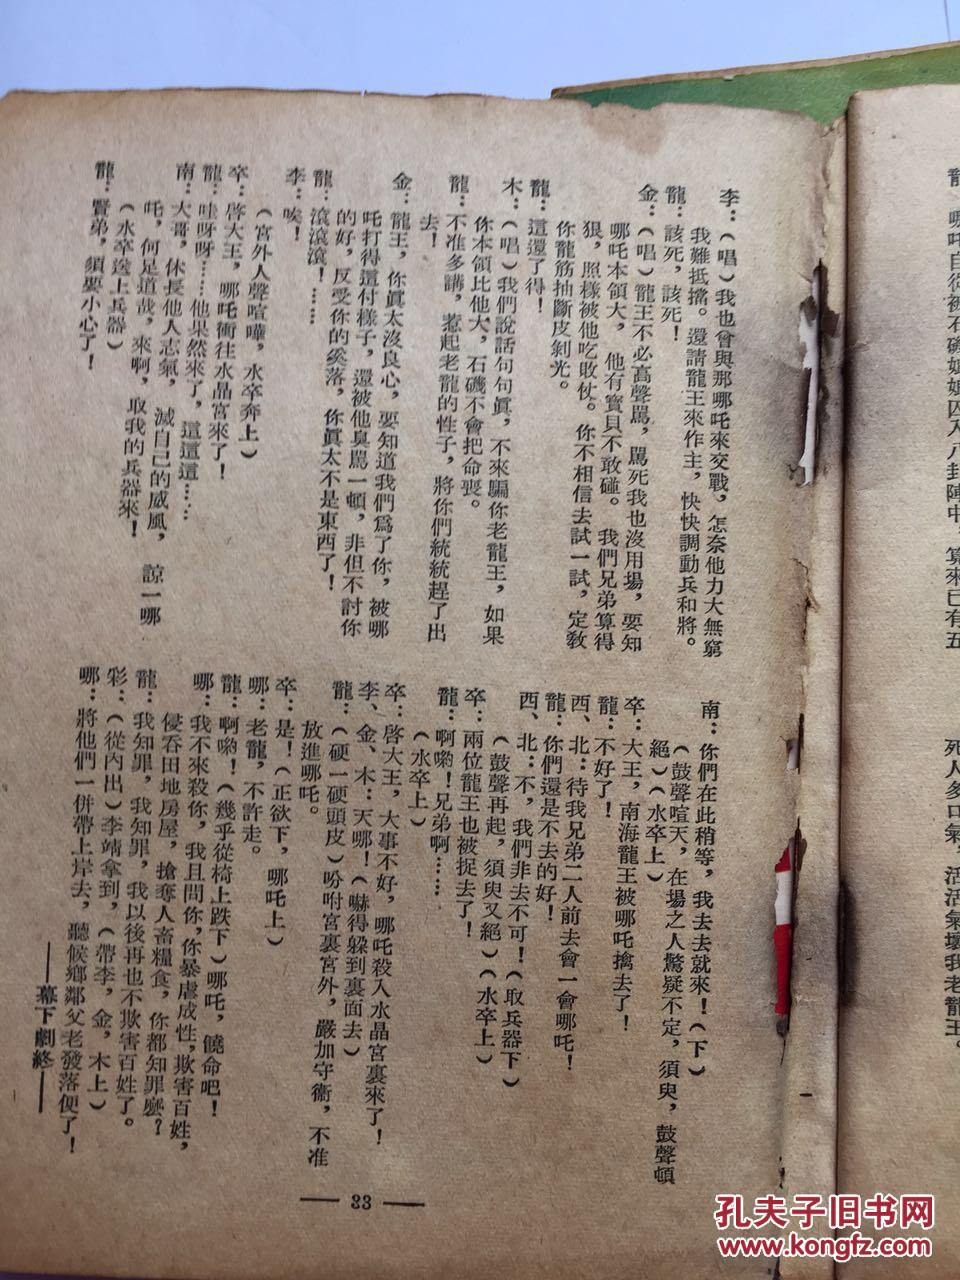 李：（唱）我也曾與那哪吒來交戰，怎奈他力大無窮
我難抵擋。還請龍王來作主，快快調動兵和將。
龍：該死，該死！
金：（唱）龍王不必高聲罵，罵死我也沒用場，要知
哪吒本領大，他有寶貝不敢碰。我們兄弟算得
狠，照樣被他吃敗仗。你不相信去試一試，定教
你龍筋抽斷皮剝光。
龍：這還了得！
木：（唱）我們說話句句眞，不來騙你老龍王，如果
你本領比他大，石磯不會把命喪。
龍：不准多講，惹起老龍的性子，將你們統統趕了出
去！
金：龍王，你眞太沒良心，要知道我們爲了你，被哪
吒打得這付樣子，還被他臭罵一頓，非但不討你
的好，反受你的奚落，你眞太不是東西了！
龍：滾滾滾！……
李：唉！
（宮外人聲喧嘩，水卒奔上）
卒：啓大王，哪吒衝往水晶宮來了！
龍：哇呀呀……他果然來了，這這這……
南：大哥，休長他人志氣，滅自己的威風，諒一哪
吒，何足道哉，來啊，取我的兵器來！
（水卒送上兵器）
龍：賢弟，須要小心了！
南：你們在此稍等，我去去就來！（下）
（鼓聲喧天，在場之人驚疑不定，須臾，鼓聲頓
絕）（水卒上）
卒：大王，南海龍王被哪吒擒去了！
龍：不好了！
西、北：待我兄弟二人前去會一會哪吒！
龍：你們還是不去的好！
西、北：不，我們非去不可！（取兵器下）
（鼓聲再起，須臾又絕）（水卒上）
卒：兩位龍王也被捉去了！
龍：啊喲！兄弟啊……
（水卒上）
卒：啓大王，大事不好，哪吒殺入水晶宮裏來了！
李、金、木：天哪！（嚇得躲到裏面去）
龍：（硬一硬頭皮）吩咐宮裏宮外，嚴加守衞，不准
放進哪吒。
卒：是！（正欲下，哪吒上）
哪：老龍，不許走。
龍：啊喲！（幾乎從椅上跌下）哪吒，饒命吧！
哪：我不來殺你，我且問你，你暴虐成性，欺害百姓，
侵吞田地房屋，搶奪人畜糧食，你都知罪麼？
龍：我知罪，我知罪，我以後再也不欺害百姓了。
彩：（從內出）李靖拿到，（帶李，金，木上）
哪：將他們一併帶上岸去，聽候鄉鄰父老發落便了！
——幕下劇終——
— 33 —
哪吒自從被石磯娘娘囚入八卦陣中，算來已有五
死人多口氣，活活氣壞我老龍王。
孔夫子旧书网
www.kongfz.com